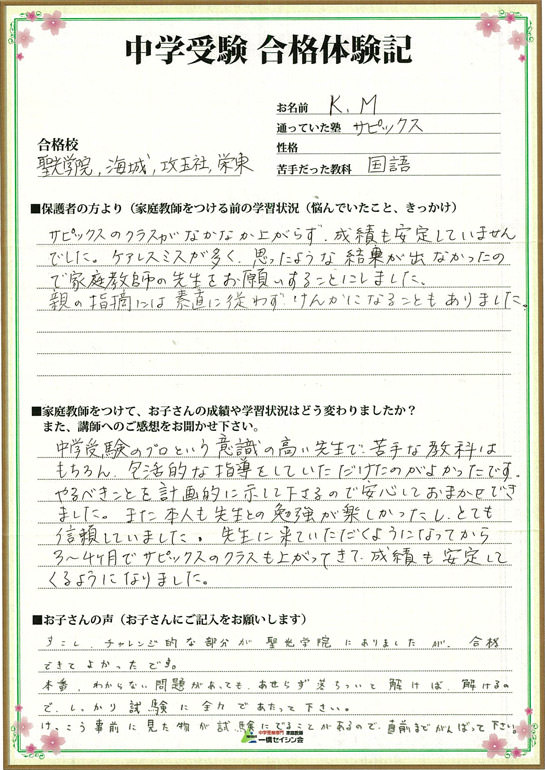 中学受験 合格体験記
お名前 K.M
通っていた塾 サピックス
性格
苦手だった教科 国語
合格校
聖光学院, 海城, 攻玉社, 栄東
■保護者の方より（家庭教師をつける前の学習状況（悩んでいたこと、きっかけ）
サピックスのクラスがなかなか上がらず、成績も安定していません
でした。ケアレスミスが多く、思ったような結果が出なかったの
で家庭教師の先生をお願いすることにしました。
親の指摘には素直に従わずけんかになることもありました。
■家庭教師をつけて、お子さんの成績や学習状況はどう変わりましたか？
また、講師へのご感想をお聞かせ下さい。
中学受験のプロという意識の高い先生で、苦手な教科は
もちろん、包括的な指導をしていただけたのがよかったです。
やるべきことを計画的に示して下さるので安心しておまかせでき
ました。また本人も先生との勉強が楽しかったし、とても
信頼していました。先生に来ていただくようになってから
3〜4ヶ月でサピックスのクラスも上がってきて、成績も安定して
くるようになりました。
■お子さんの声（お子さんにご記入をお願いします）
すこし、チャレンジ的な部分が聖光学院にありましたが、合格
できてよかったです。
本番、わからない問題があっても、あせらず落ちついて解けば、解けるの
で、しっかり試験に全力であたって下さい。
けっこう事前に見た物が試験にでることがあるので、直前までがんばって下さい。
中学受験専門 家庭教師
一橋セイシン会